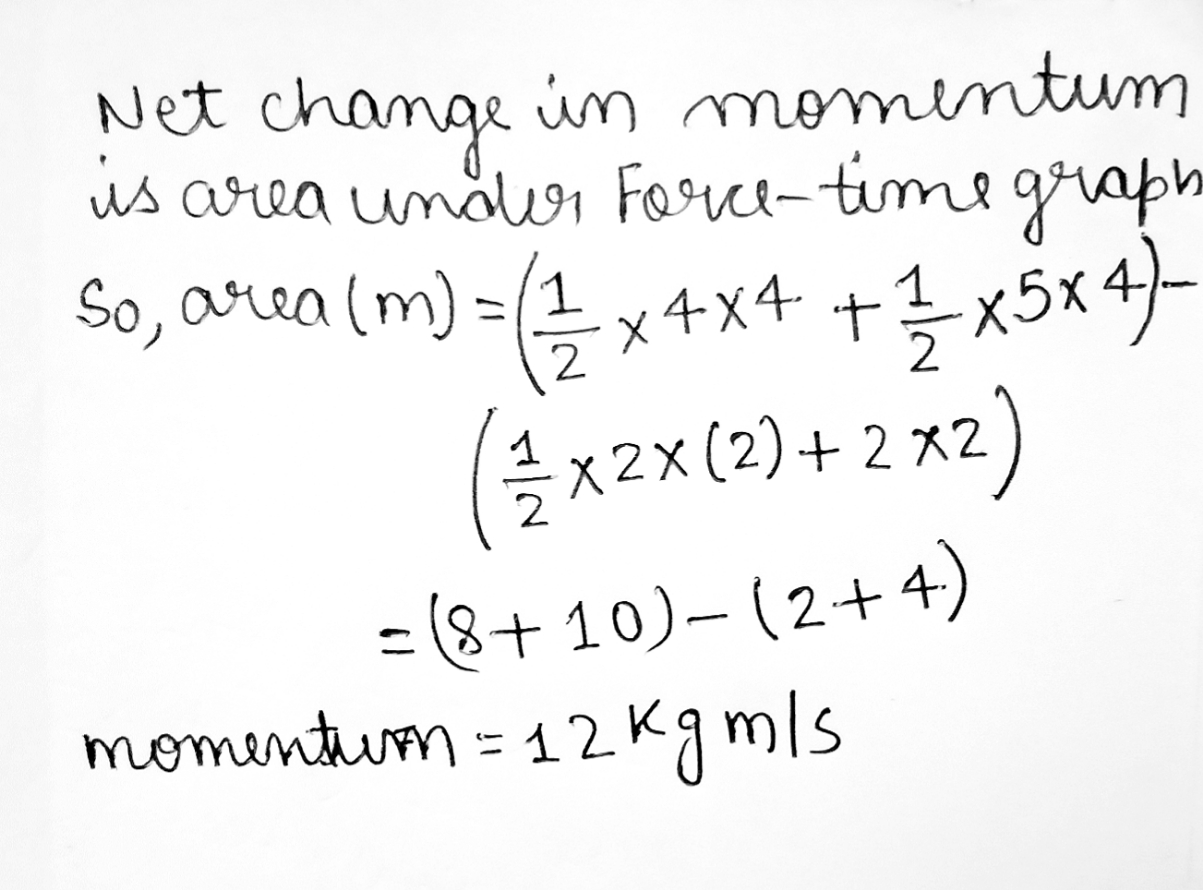 Net change in momentum
is area under Force-time graph
So, area (m) = (1/2 x 4 x 4 + 1/2 x 5 x 4) -
(1/2 x 2 x (2) + 2 x 2)
= (8 + 10) - (2 + 4)
momentum = 12 Kg m/s